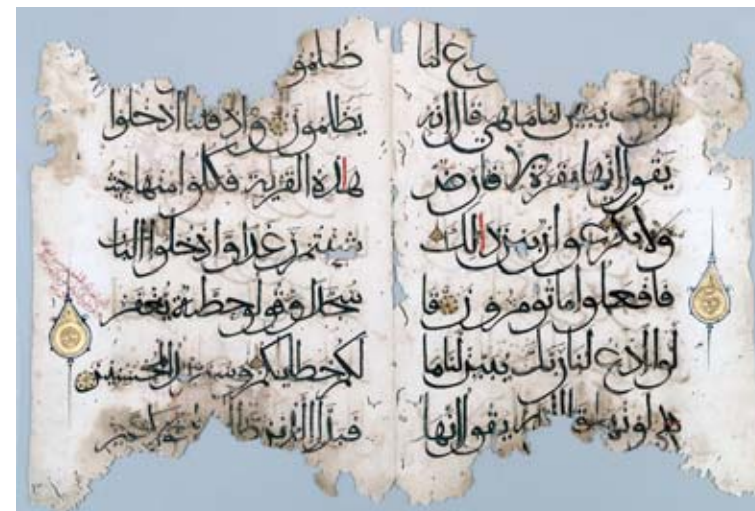 ع لنا
ربك يبين لنا ما هي قال انه
يقول انها بقرة لا فارض
ولا بكر عوان بين ذالك
فافعلوا ما تومرون قا
لوا ادع لنا ربك يبين لنا ما
لونها قال انه يقول انها
ظلمو
يظلمون واذ قلنا ادخلوا
هاذه القرية فكلوا منها حيث
شيتم رغدا وادخلوا الباب
سجدا وقولوا حطة يغفر
لكم خطايكم وسنزيد المحسنين
فبدل الذين غير